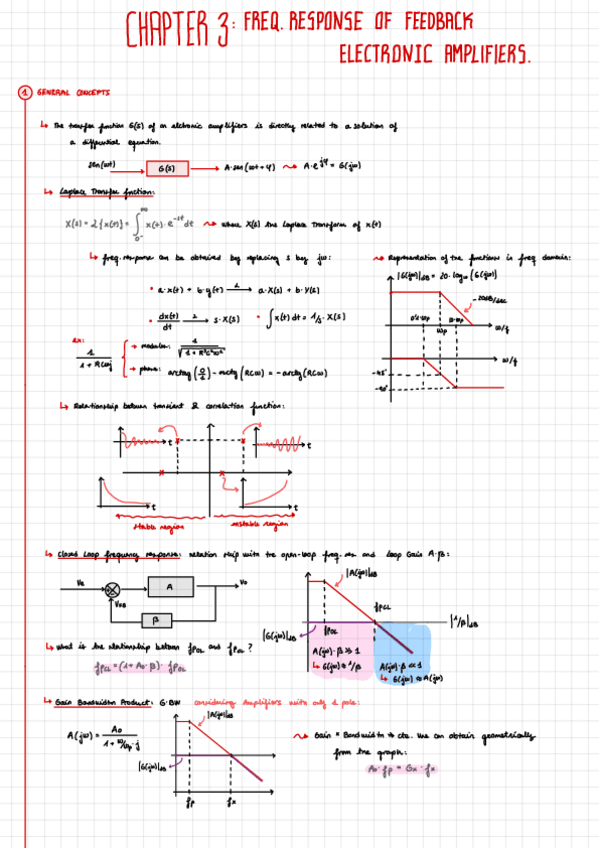 CHAPTER 3: FREQ. RESPONSE OF FEEDBACK
ELECTRONIC AMPLIFIERS.
1 GENERAL CONCEPTS
↳ The transfer function G(s) of an elctronic amplifiers is directly related to a solution of
a differential equation.
sen(ωt) → G(s) → A·sen(ωt+φ) ⇝ A·e^jφ = G(jω)
↳ Laplace Transfer function:
X(s) = L{x(t)} = ∫ 0⁻ ∞ x(t)·e^-st dt ⇝ where X(s) the Laplace Transform of x(t)
↳ freq. response can be obtained by replacing s by jω:
⇝ Representation of the functions in freq domain:
|G(jω)|dB = 20·log₁₀(G(jω))
• a·x(t) + b·y(t) →L a·X(s) + b·Y(s)
-20dB/dec
• dx(t)/dt →L s·X(s) • ∫x(t)dt = 1/s·X(s)
0'1·ωp 10·ωp
ωp
ω/f
ex:
1/(1+RCωj)
→ modulus: 1/√(1+R²C²ω²)
→ phase: arctg(0/1) - arctg(RCω) = -arctg(RCω)
ω/f
-45°
-90°
↳ Relationship between transient & correlation function:
t
t
t
t
stable region unstable region
↳ Closed Loop frequency response: relation ship with the open-loop freq. res. and loop Gain A·β:
Ve A Vo
VFB
β
|A(jω)|dB
fPCL
|1/β|dB
|G(jω)|dB
fPOL
A(jω)·β ≫ 1
↳ G(jω) ≈ 1/β
A(jω)·β ≪ 1
↳ G(jω) ≈ A(jω)
↳ What is the relationship between fPOL and fPCL?
fPCL = (1+A₀·β)·fPOL
↳ Gain Bandwidth Product: G·BW considering Amplifiers with only 1 pole:
A(jω) = A₀/(1+ω/ωp·j)
|A(jω)|dB
|G(jω)|dB
fp fx
⇝ Gain × Bandwidth → cte. We can obtain geometrically
from the graph:
A₀·fp = Gx·fx